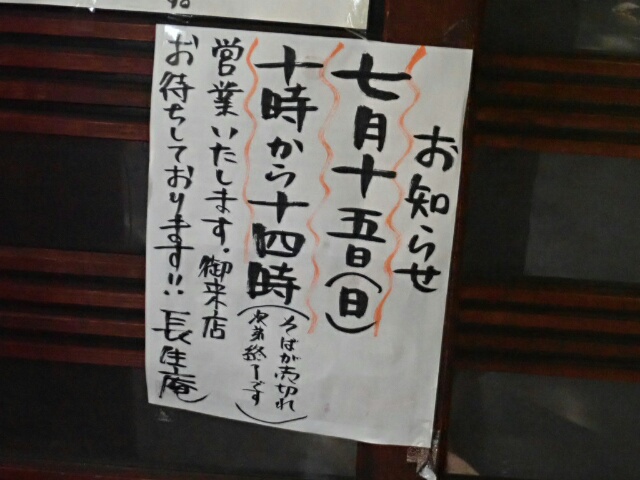 お知らせ
七月十五日(日)
十時から十四時
(そばが売切れ
次第終了です)
営業いたします。御来店
お待ちしております!! 長生庵